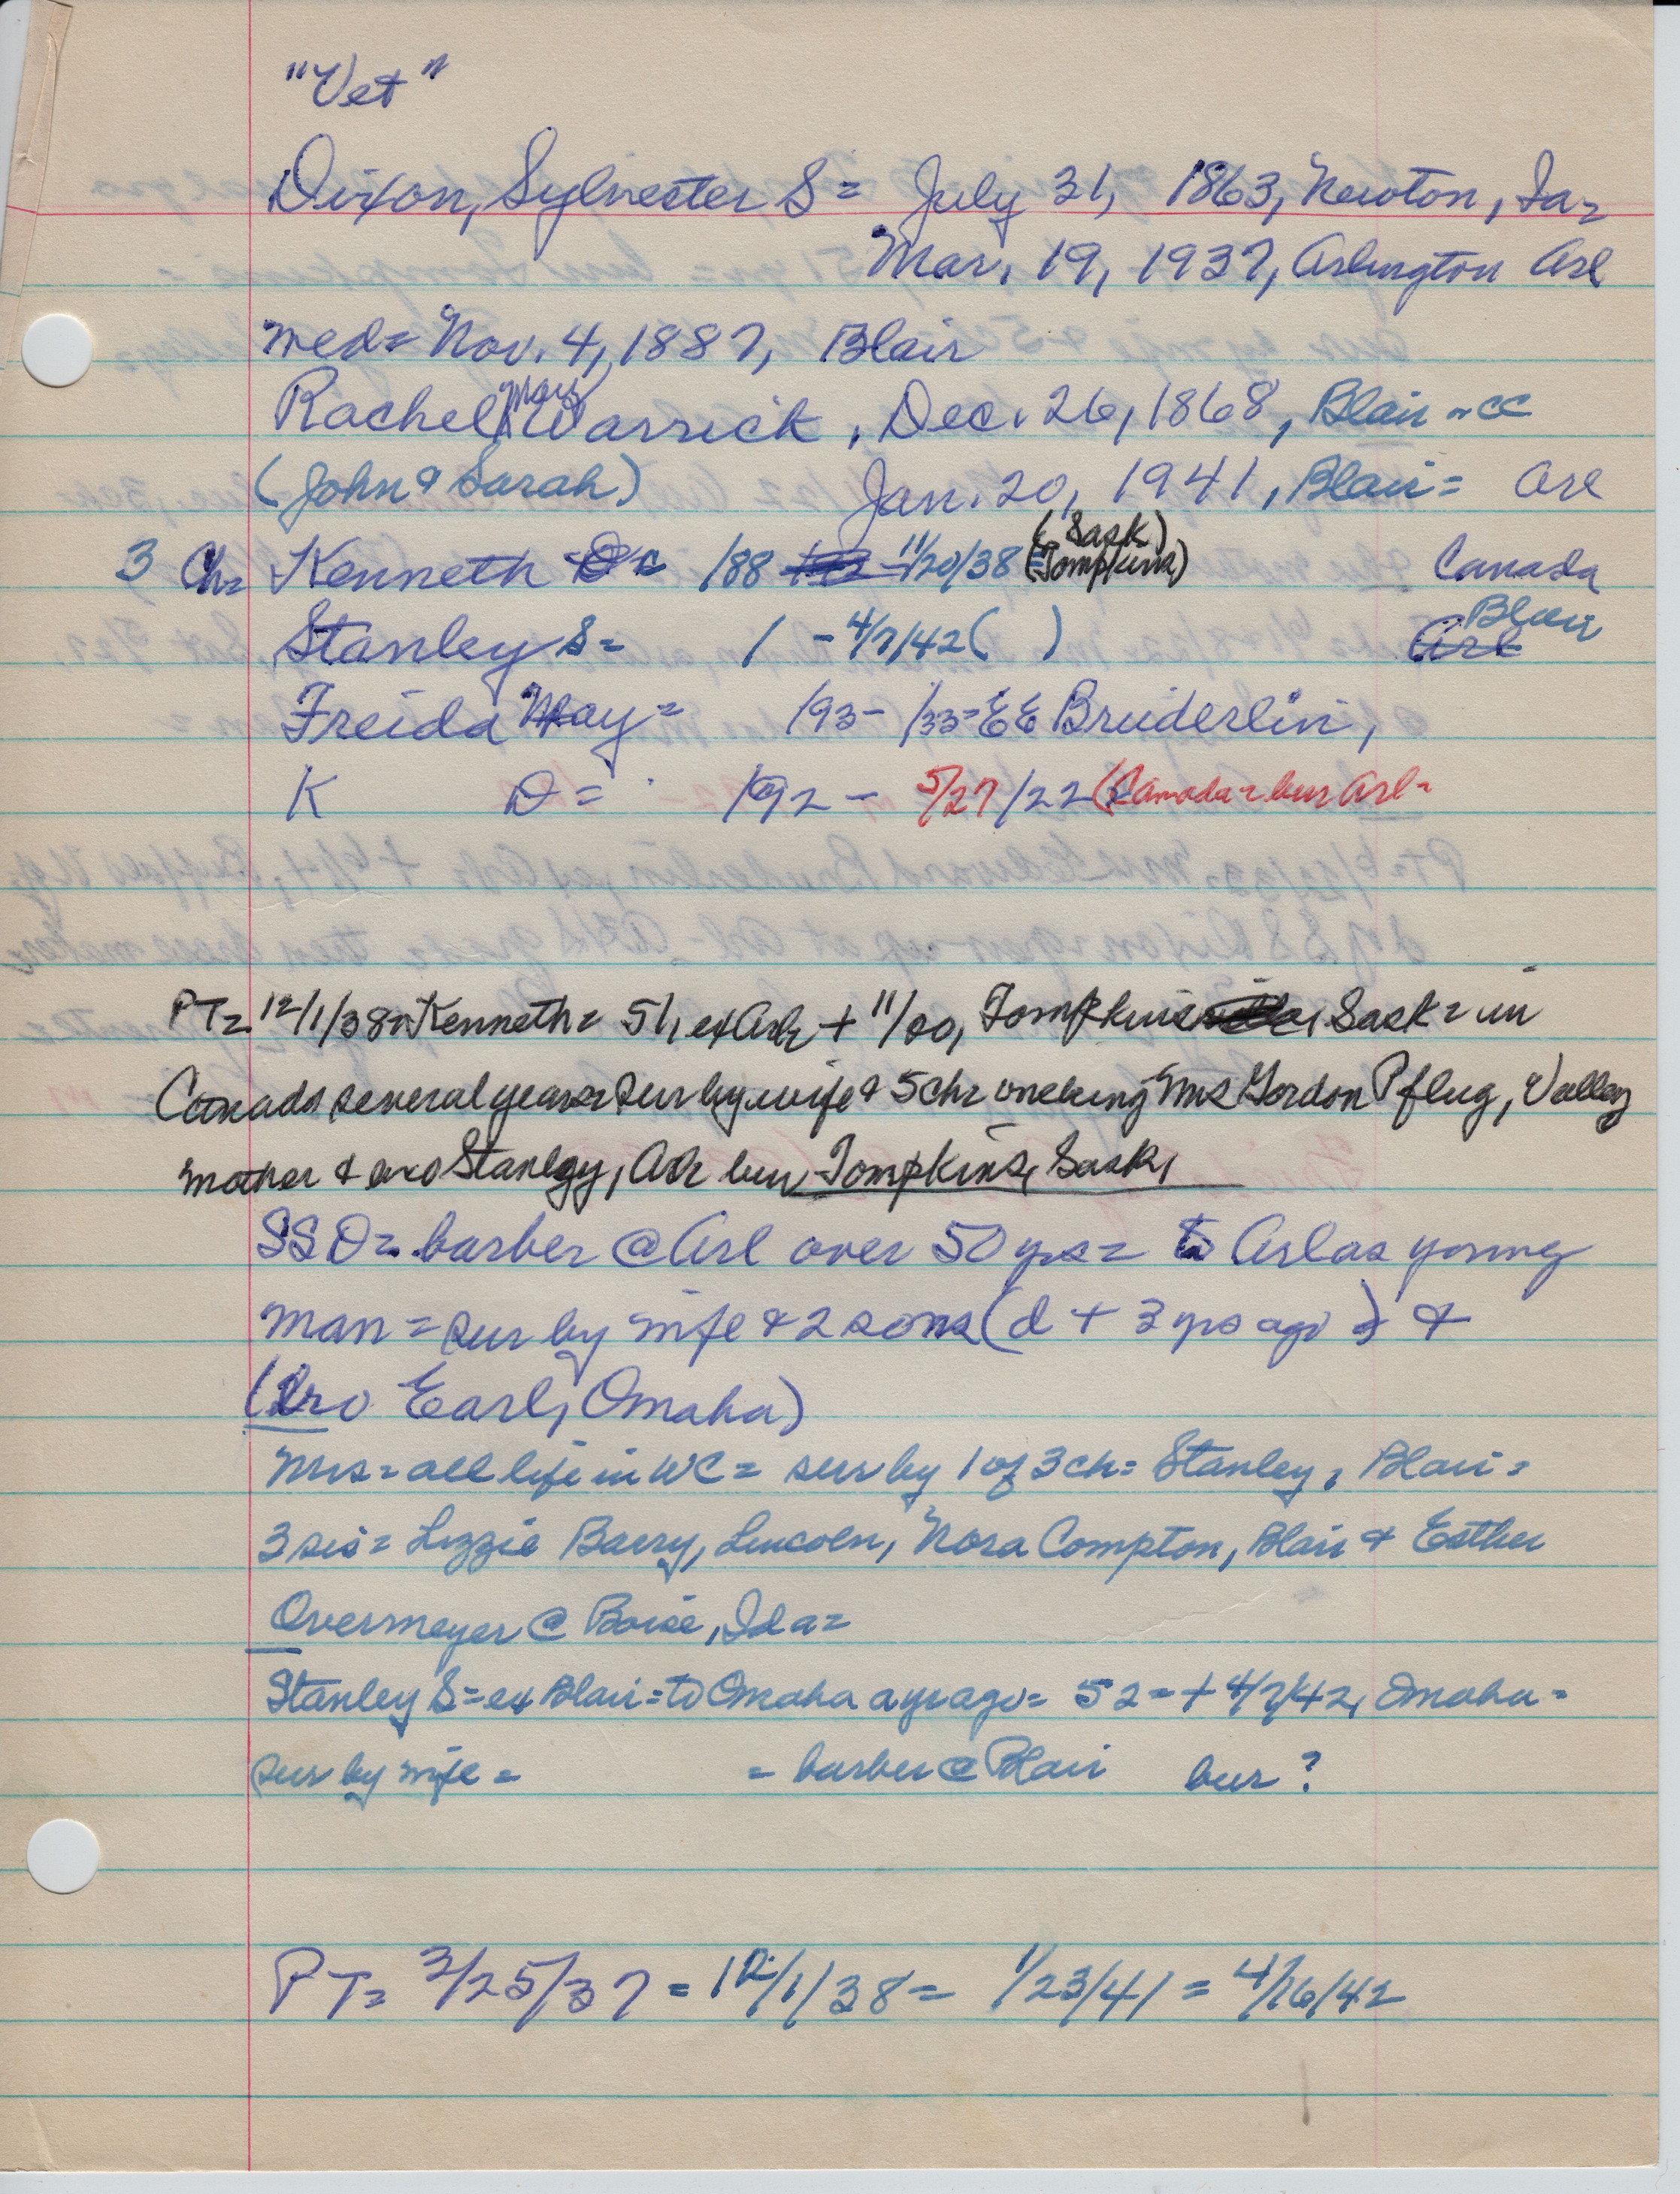 "Vet"
Dixon, Sylvester S= July 31, 1863, Newton, Ia=
Mar. 19, 1937, Arlington Arl
med= Nov. 4, 1887, Blair
Rachel May Warrick, Dec. 26, 1868, Blair = CC
(John & Sarah) Jan. 20, 1941, Blair= Arl
3 Ch= Kenneth /88 - 11/20/38 (Sask) (Tompkins) Canada
Stanley S= / - 4/7/42 ( ) Arl Blair
Freida May= /93 - /33= EE Bruderlin,
K D= /92 - 5/27/22 (Canada = bur Arl=
PT= 12/1/38= Kenneth= 51, ex Arl= + 11/20, Tompkins, Sask= in
Canada several years= sur by wife & 5 ch= one being Mrs Gordon Pflug, Valley
mother & bro Stanley, Arl= bur Tompkins, Sask,
SSD= barber @ Arl over 50 yrs= to Arl as young
man= sur by wife & 2 sons (d + 3 yrs ago) &
(bro Earl, Omaha)
Mrs= all life in WC= sur by 1 of 3 ch= Stanley, Blair=
3 sis= Lizzie Barry, Lincoln, Nora Compton, Blair & Esther
Overmeyer @ Boise, Ida=
Stanley S= ex Blair= to Omaha a yr ago= 52= + 4/7/42, Omaha=
sur by wife = = barber @ Blair bur?
PT= 3/25/37 = 12/1/38 = 1/23/41 = 4/16/42